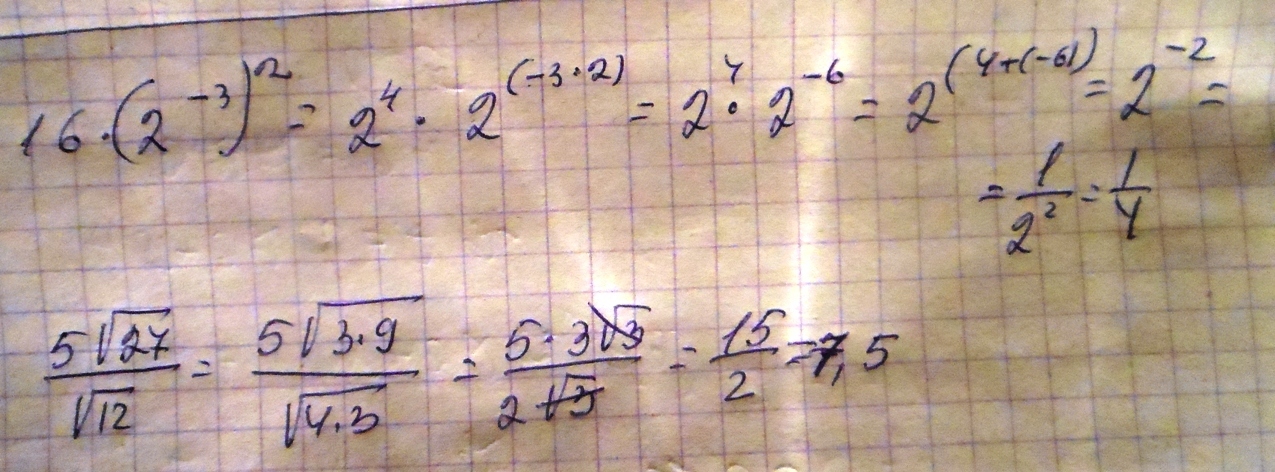 16·(2⁻³)² = 2⁴ · 2^(-3·2) = 2⁴ · 2⁻⁶ = 2^(4+(-6)) = 2⁻² =
= 1/2² = 1/4
5√27/√12 = 5√3·9/√4·3 = 5·3√3/2√3 = 15/2 = 7,5